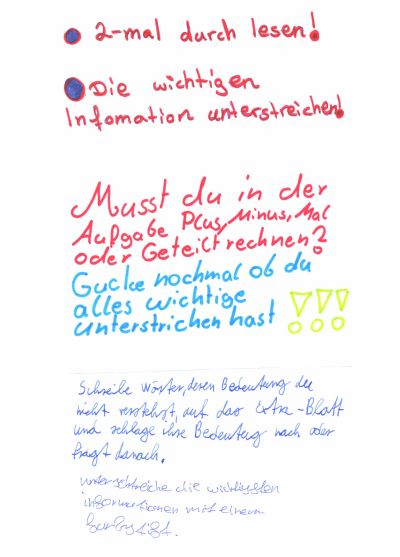 2-mal durch lesen!
Die wichtigen
Infomation unterstreichen!
Musst du in der
Aufgabe Plus, Minus, Mal
oder Geteilt rechnen?
Gucke nochmal ob du
alles wichtige
unterstrichen hast !!!
Schreibe Wörter, deren Bedeutung du
nicht verstehst, auf das Extra-Blatt
und schlage ihre Bedeutung nach oder
fragt danach.
unterschtreiche die wichtigsten
informationen mit einem